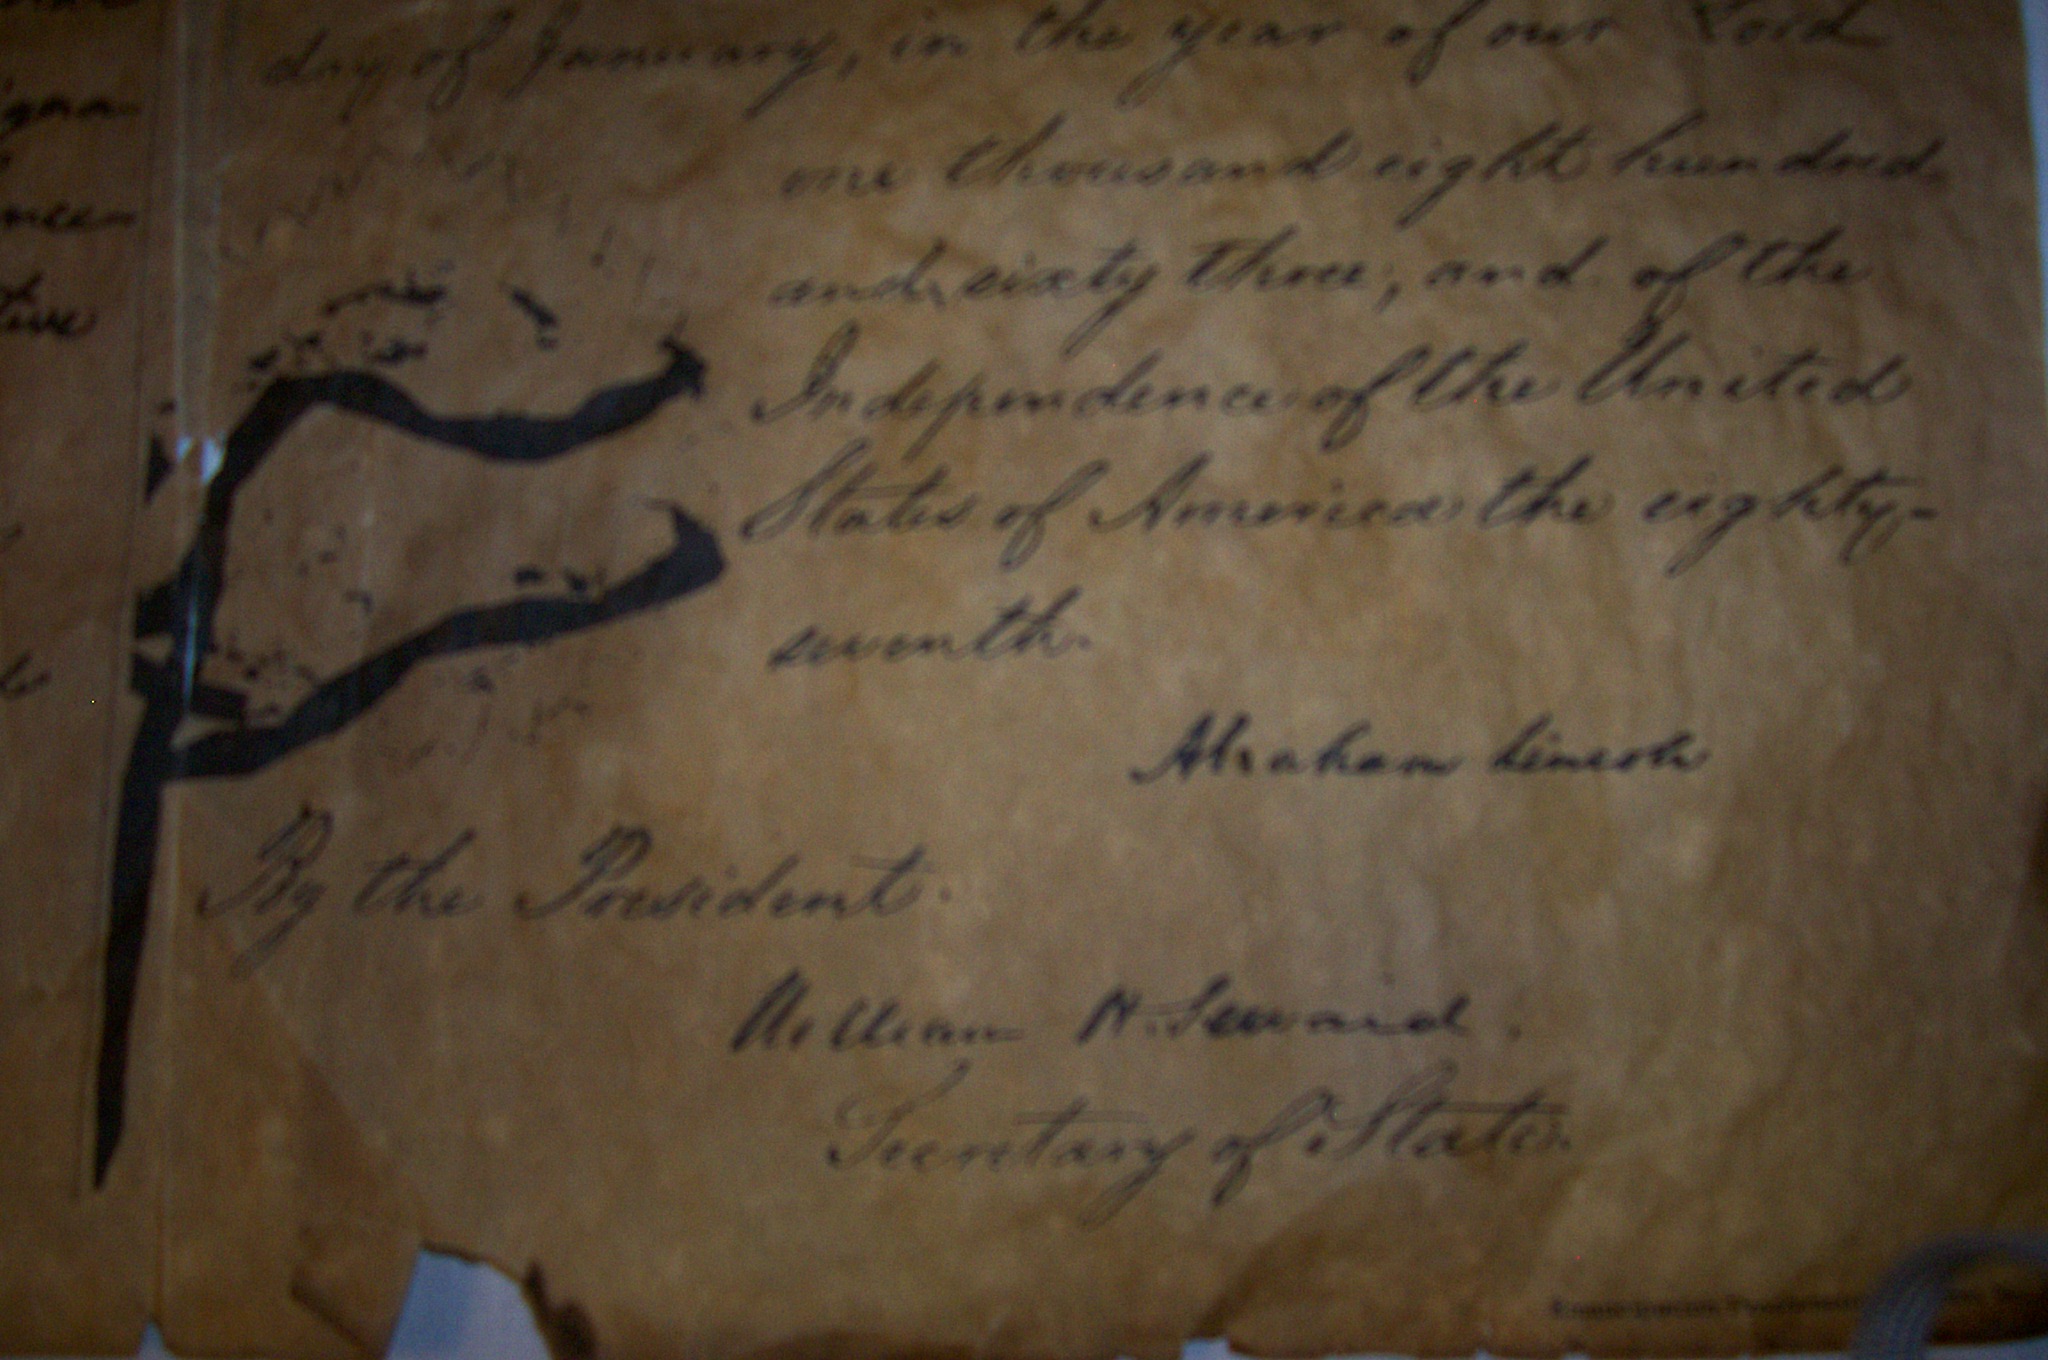 day of January, in the year of our Lord
one thousand eight hundred
and sixty three, and of the
Independence of the United
States of America the eighty-
seventh.
Abraham Lincoln
By the President.
William H. Seward.
Secretary of State.
Emancipation